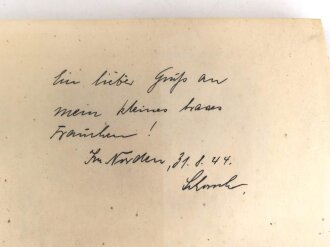 Ein lieber Gruß an
mein kleines braves
Frauchen!
Im Norden, 31.8.44.